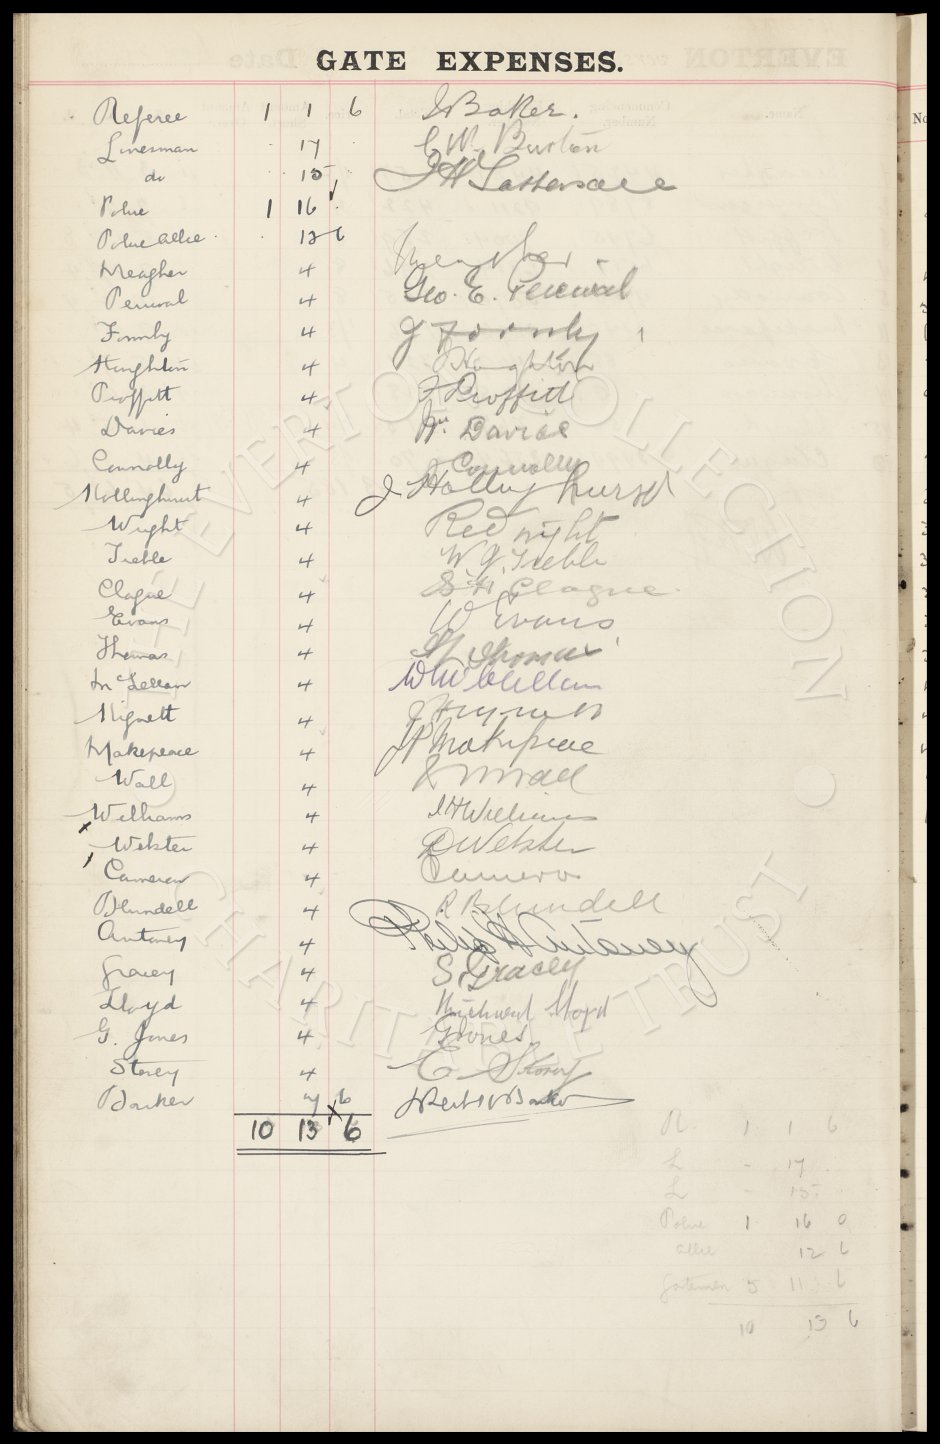 GATE EXPENSES.
Referee 1 1 6 J Baker.
Linesman 17 C W. Burton
do 15 J H Tattersall
Police 1 16
Police allce 12 6
Meagher 4 Meagher
Percival 4 Geo. E. Percival
Formby 4 J Formby
Houghton 4 J Houghton
Proffitt 4 J Proffitt
Davies 4 Wm. Davies
Connolly 4 J Connolly
Hollinghurst 4 J Hollinghurst
Wright 4 Red Wright
Treble 4 W. J. Treble
Clague 4 S. H. Clague
Evans 4 W Evans
Thomas 4 Thomas
McLellan 4 W McClellan
Mignett 4
Makepeace 4 Makepeace
Wall 4 Wall
Williams 4 J H Williams
Webster 4 D Webster
Cameron 4 Cameron
Blundell 4 R Blundell
Antoney 4 Philip H Antoney
Gracey 4 S Gracey
Lloyd 4 Lloyd
G. Jones 4 G Jones
Storey 4 E Storey
Barker 7 6 Barker
10 13 6
R. 1 1 6
L - 17
L - 15
Police 1 16 0
allce 12 6
Gatemen 5 11 6
10 13 6
THE EVERTON COLLECTION CHARITABLE TRUST
No